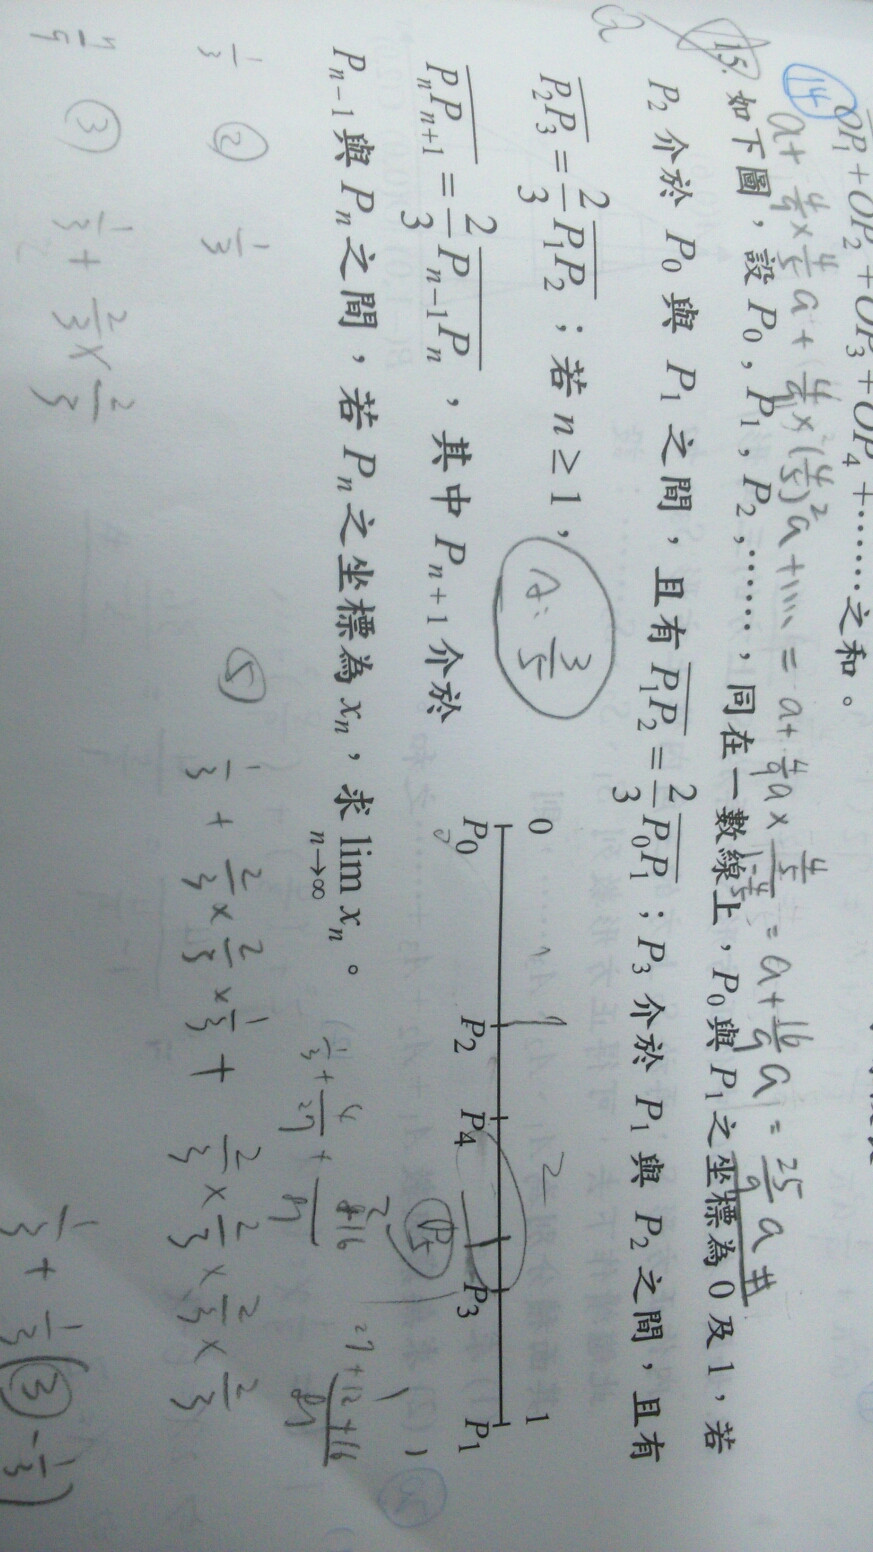 OP₁ + OP₂ + OP₃ + OP₄ + ……之和。
14
a + 4/9 × 4/5 a + 4/9 × (4/5)² a + … = a + 4/9 a ×
= a + 16/9 a = 25/9 a #
15. 如下圖，設 P₀，P₁，P₂，……，同在一數線上，P₀與 P₁之坐標為 0 及 1，若
P₂ 介於 P₀ 與 P₁ 之間，且有 P₁P₂ = 2/3 P₀P₁；P₃ 介於 P₁ 與 P₂ 之間，且有
P₂P₃ = 2/3 P₁P₂；若 n ≥ 1，
A: 3/5
PₙPₙ₊₁ = 2/3 Pₙ₋₁Pₙ，其中 Pₙ₊₁ 介於
Pₙ₋₁ 與 Pₙ 之間，若 Pₙ 之坐標為 xₙ，求 lim n→∞ xₙ。
0 1
P₀ P₂ P₄ P₅ P₃ P₁
1/3 ② 1/3
⑤ 1/3 + 2/3 × 2/3 × 1/3 + 2/3 × 2/3 × 2/3 × 2/3
1/3 + 4/27 +
27+12+16
7/9 ③ 1/3 + 2/3 × 2/3
1/3 + 1/3 (③ - 1/3)